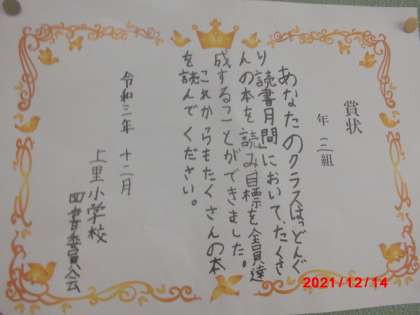 賞状
年 三組
あなたのクラスは、どんぐ
り読書月間において、たくさ
んの本を読み目標を全員達
成することができました。
これからもたくさんの本
を読んでください。
令和三年 十二月
上里小学校
図書委員会
2021/12/14